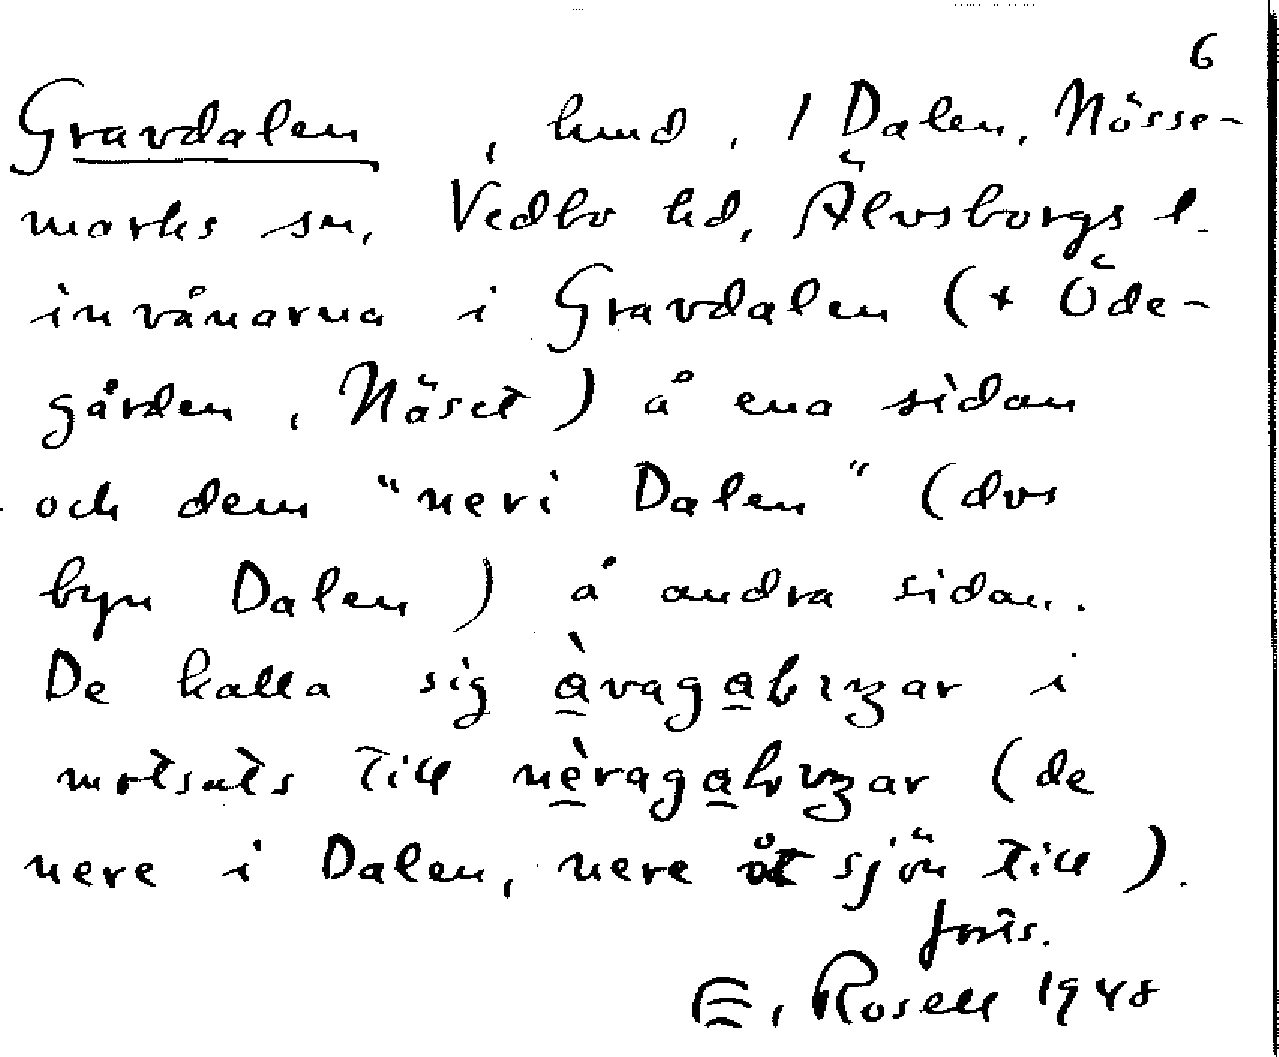 6
Gravdalen, hmd, 1 Dalen, Nösse-
marks sn, Vedbo hd, Älvsborgs l.
invånarna i Gravdalen (+ Öde-
gården, Näset) å ena sidan
och dem "neri Dalen" (dvs
byn Dalen) å andra sidan.
De kalla sig i
motsats till (de
nere i Dalen, nere åt sjön till).
forts.
E. Rosell 1948